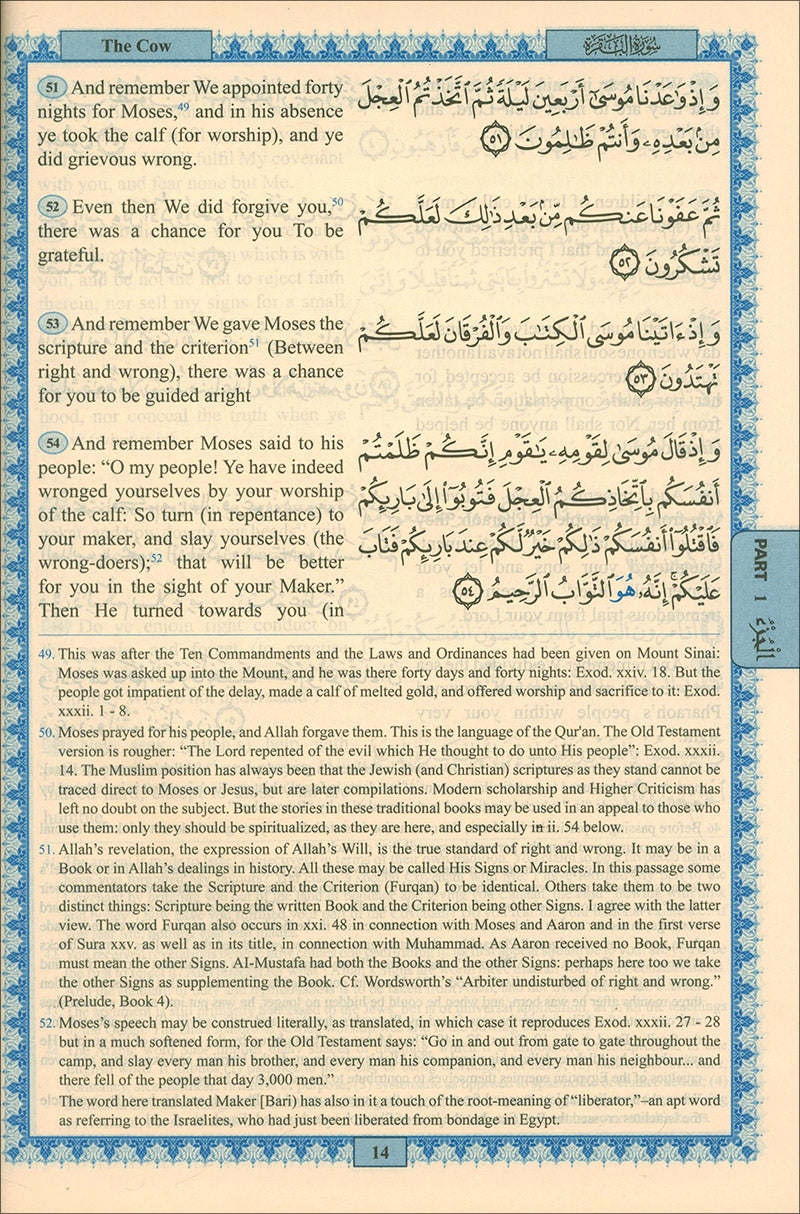 The Cow
سُورَةُ الْبَقَرَةِ
51 And remember We appointed forty
nights for Moses,49 and in his absence
ye took the calf (for worship), and ye
did grievous wrong.
وَإِذْ وَٰعَدْنَا مُوسَىٰٓ أَرْبَعِينَ لَيْلَةً ثُمَّ ٱتَّخَذْتُمُ ٱلْعِجْلَ
مِنۢ بَعْدِهِۦ وَأَنتُمْ ظَٰلِمُونَ ٥١
52 Even then We did forgive you,50
there was a chance for you To be
grateful.
ثُمَّ عَفَوْنَا عَنكُم مِّنۢ بَعْدِ ذَٰلِكَ لَعَلَّكُمْ
تَشْكُرُونَ ٥٢
53 And remember We gave Moses the
scripture and the criterion51 (Between
right and wrong), there was a chance
for you to be guided aright
وَإِذْ ءَاتَيْنَا مُوسَى ٱلْكِتَٰبَ وَٱلْفُرْقَانَ لَعَلَّكُمْ
تَهْتَدُونَ ٥٣
54 And remember Moses said to his
people: “O my people! Ye have indeed
wronged yourselves by your worship
of the calf: So turn (in repentance) to
your maker, and slay yourselves (the
wrong-doers);52 that will be better
for you in the sight of your Maker.”
Then He turned towards you (in
وَإِذْ قَالَ مُوسَىٰ لِقَوْمِهِۦ يَٰقَوْمِ إِنَّكُمْ ظَلَمْتُمْ
أَنفُسَكُم بِٱتِّخَاذِكُمُ ٱلْعِجْلَ فَتُوبُوٓا۟ إِلَىٰ بَارِئِكُمْ
فَٱقْتُلُوٓا۟ أَنفُسَكُمْ ذَٰلِكُمْ خَيْرٌ لَّكُمْ عِندَ بَارِئِكُمْ فَتَابَ
عَلَيْكُمْ ۚ إِنَّهُۥ هُوَ ٱلتَّوَّابُ ٱلرَّحِيمُ ٥٤
PART 1 الْجُزْءُ
49. This was after the Ten Commandments and the Laws and Ordinances had been given on Mount Sinai:
Moses was asked up into the Mount, and he was there forty days and forty nights: Exod. xxiv. 18. But the
people got impatient of the delay, made a calf of melted gold, and offered worship and sacrifice to it: Exod.
xxxii. 1 - 8.
50. Moses prayed for his people, and Allah forgave them. This is the language of the Qur'an. The Old Testament
version is rougher: “The Lord repented of the evil which He thought to do unto His people”: Exod. xxxii.
14. The Muslim position has always been that the Jewish (and Christian) scriptures as they stand cannot be
traced direct to Moses or Jesus, but are later compilations. Modern scholarship and Higher Criticism has
left no doubt on the subject. But the stories in these traditional books may be used in an appeal to those who
use them: only they should be spiritualized, as they are here, and especially in ii. 54 below.
51. Allah’s revelation, the expression of Allah’s Will, is the true standard of right and wrong. It may be in a
Book or in Allah’s dealings in history. All these may be called His Signs or Miracles. In this passage some
commentators take the Scripture and the Criterion (Furqan) to be identical. Others take them to be two
distinct things: Scripture being the written Book and the Criterion being other Signs. I agree with the latter
view. The word Furqan also occurs in xxi. 48 in connection with Moses and Aaron and in the first verse
of Sura xxv. as well as in its title, in connection with Muhammad. As Aaron received no Book, Furqan
must mean the other Signs. AI-Mustafa had both the Books and the other Signs: perhaps here too we take
the other Signs as supplementing the Book. Cf. Wordsworth’s “Arbiter undisturbed of right and wrong.”
(Prelude, Book 4).
52. Moses’s speech may be construed literally, as translated, in which case it reproduces Exod. xxxii. 27 - 28
but in a much softened form, for the Old Testament says: “Go in and out from gate to gate throughout the
camp, and slay every man his brother, and every man his companion, and every man his neighbour... and
there fell of the people that day 3,000 men.”
The word here translated Maker [Bari) has also in it a touch of the root-meaning of “liberator,”–an apt word
as referring to the Israelites, who had just been liberated from bondage in Egypt.
14